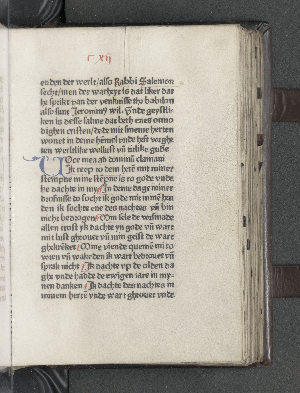 C XII
enden der werlt/also Rabbi Salemon
secht/men der warheye is dat liker dat
he spikt van der venknisse tho babilon
also sunt Jeronim9 wil. Unde geystli-
ken is desse salme dat beth enes otmo
dighen cristen/de de mit sineme herten
wonet in deme hemel unde hest vorghe
ten werltlike wollust un titlike gude
Voce mea ad dominu clamaui
Ik reep to dem here mit miner
stempne mine stepne is to gode unde
he dachte in my In deme daghe miner
drofnisse do socht ik gode mit mine han
den ik suchte ene des nachtes un bin
nicht bedroghen Min sele de vorsmade
allen trost yk dachte yn gode un wart
mit lust gheouet un min geist de wart
ghekrencket Mine viende queme mi to
voren un waken den ik wart bedrouet un
sprak nicht Ik dachte yp de olden da
ghe unde hadde de ewigen iare in my-
nen danken Ik dachte den nachtes in
minem herte unde wart gheouet unde